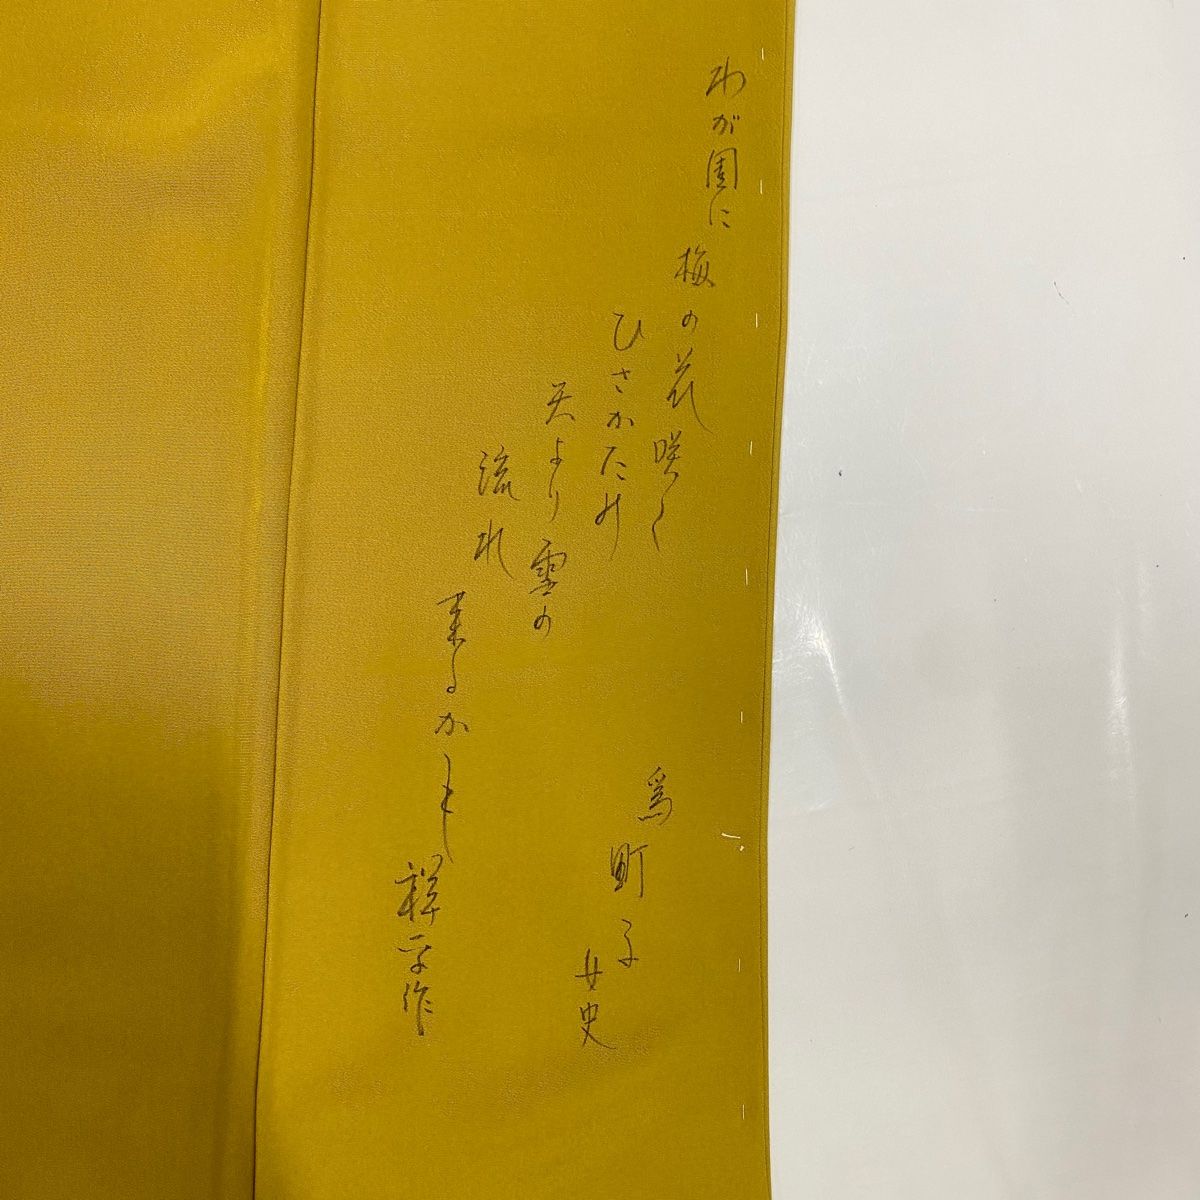 わが園に
梅の花咲く
ひさかたの
天より雪の
流れ
来るかも
爲町子
女史
祥 作